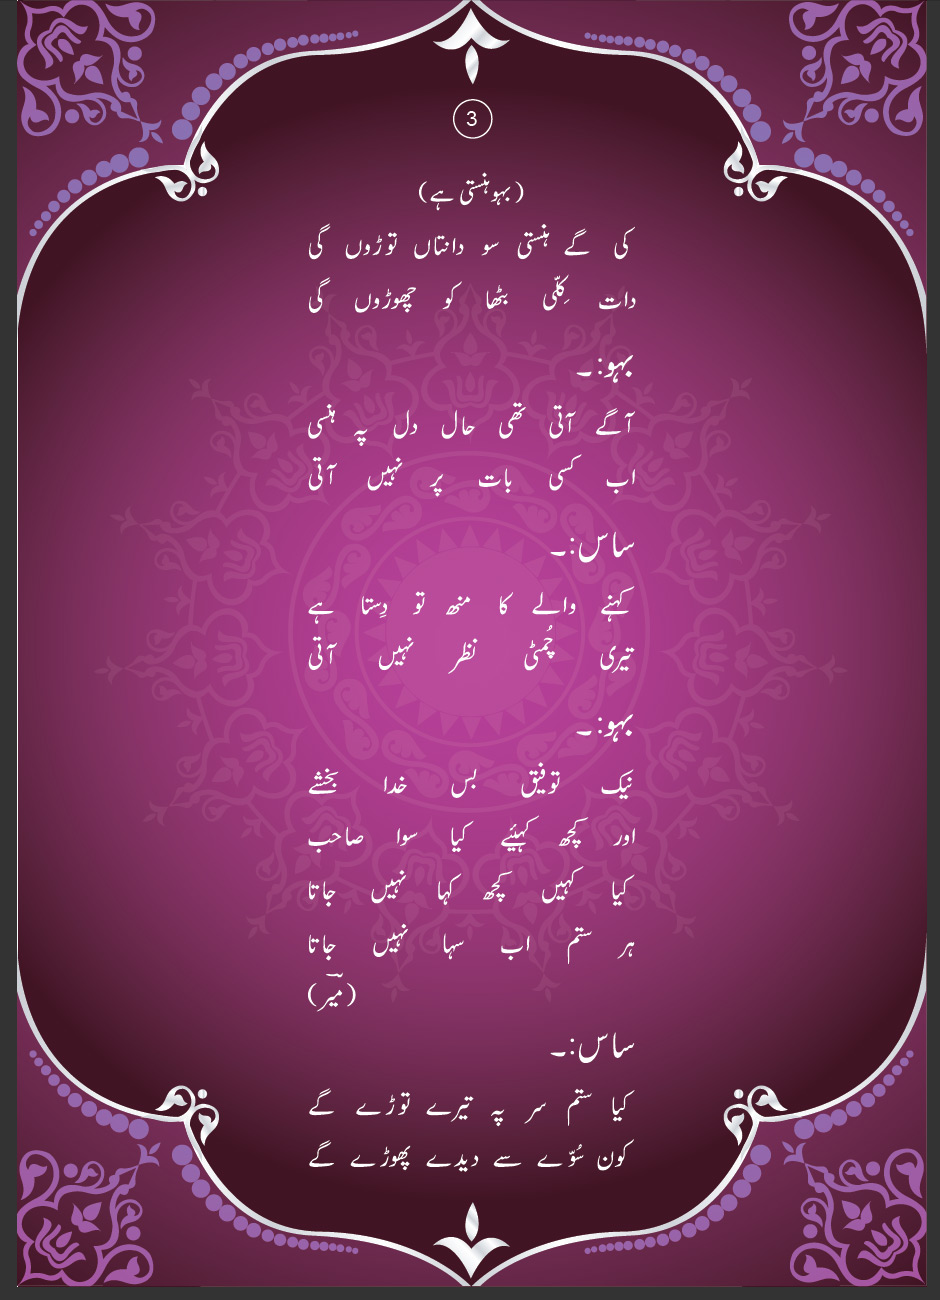 3
(بہو ہنستی ہے)
کی گے ہنستی سو دانتاں توڑوں گی
دات کِلّی بٹھا کو چھوڑوں گی
بہو:۔
آگے آتی تھی حال دل پہ ہنسی
اب کسی بات پر نہیں آتی
ساس:۔
کہنے والے کا منھ تو دِستا ہے
تیری چُمٹی نظر نہیں آتی
بہو:۔
نیک توفیق بس خدا بخشے
اور کچھ کہئیے کیا سوا صاحب
کیا کہیں کچھ کہا نہیں جاتا
ہر ستم اب سہا نہیں جاتا
(میرؔ)
ساس:۔
کیا ستم سر پہ تیرے توڑے گے
کون سُوّے سے دیدے پھوڑے گے